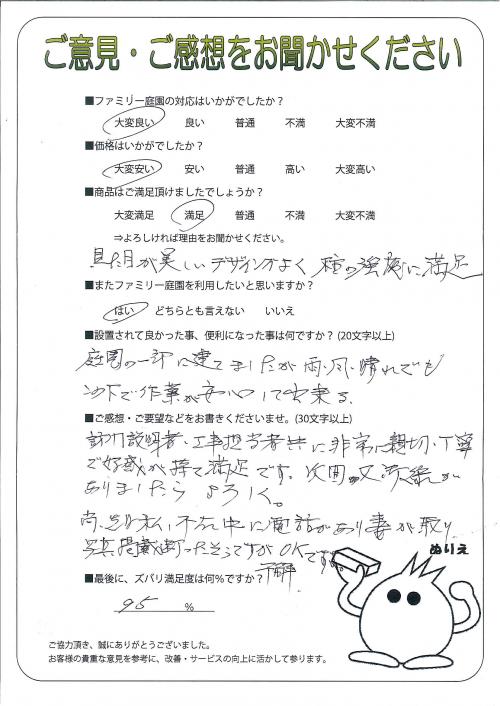 ご意見・ご感想をお聞かせください
■ファミリー庭園の対応はいかがでしたか？
大変良い 良い 普通 不満 大変不満
■価格はいかがでしたか？
大変安い 安い 普通 高い 大変高い
■商品はご満足頂けましたでしょうか？
大変満足 満足 普通 不満 大変不満
⇒よろしければ理由をお聞かせください。
見た目が美しいデザインがよく 柱の強度に満足
■またファミリー庭園を利用したいと思いますか？
はい どちらとも言えない いいえ
■設置されて良かった事、便利になった事は何ですか？(20文字以上)
庭園の一部に建てましたが雨、風、晴れでも
の下で作業が安心して出来る。
■ご感想・ご要望などをお書きくださいませ。(30文字以上)
説明者・工事担当者共に非常に親切、丁寧
で好感が持て満足です。次回の又ご縁が
ありましたらよろしく。
尚、私、不在中に電話があり妻が取り
写真掲載断ったそうですがOKです。
ぬりえ
■最後に、ズバリ満足度は何％ですか？
95 ％
ご協力頂き、誠にありがとうございました。
お客様の貴重な意見を参考に、改善・サービスの向上に活かして参ります。